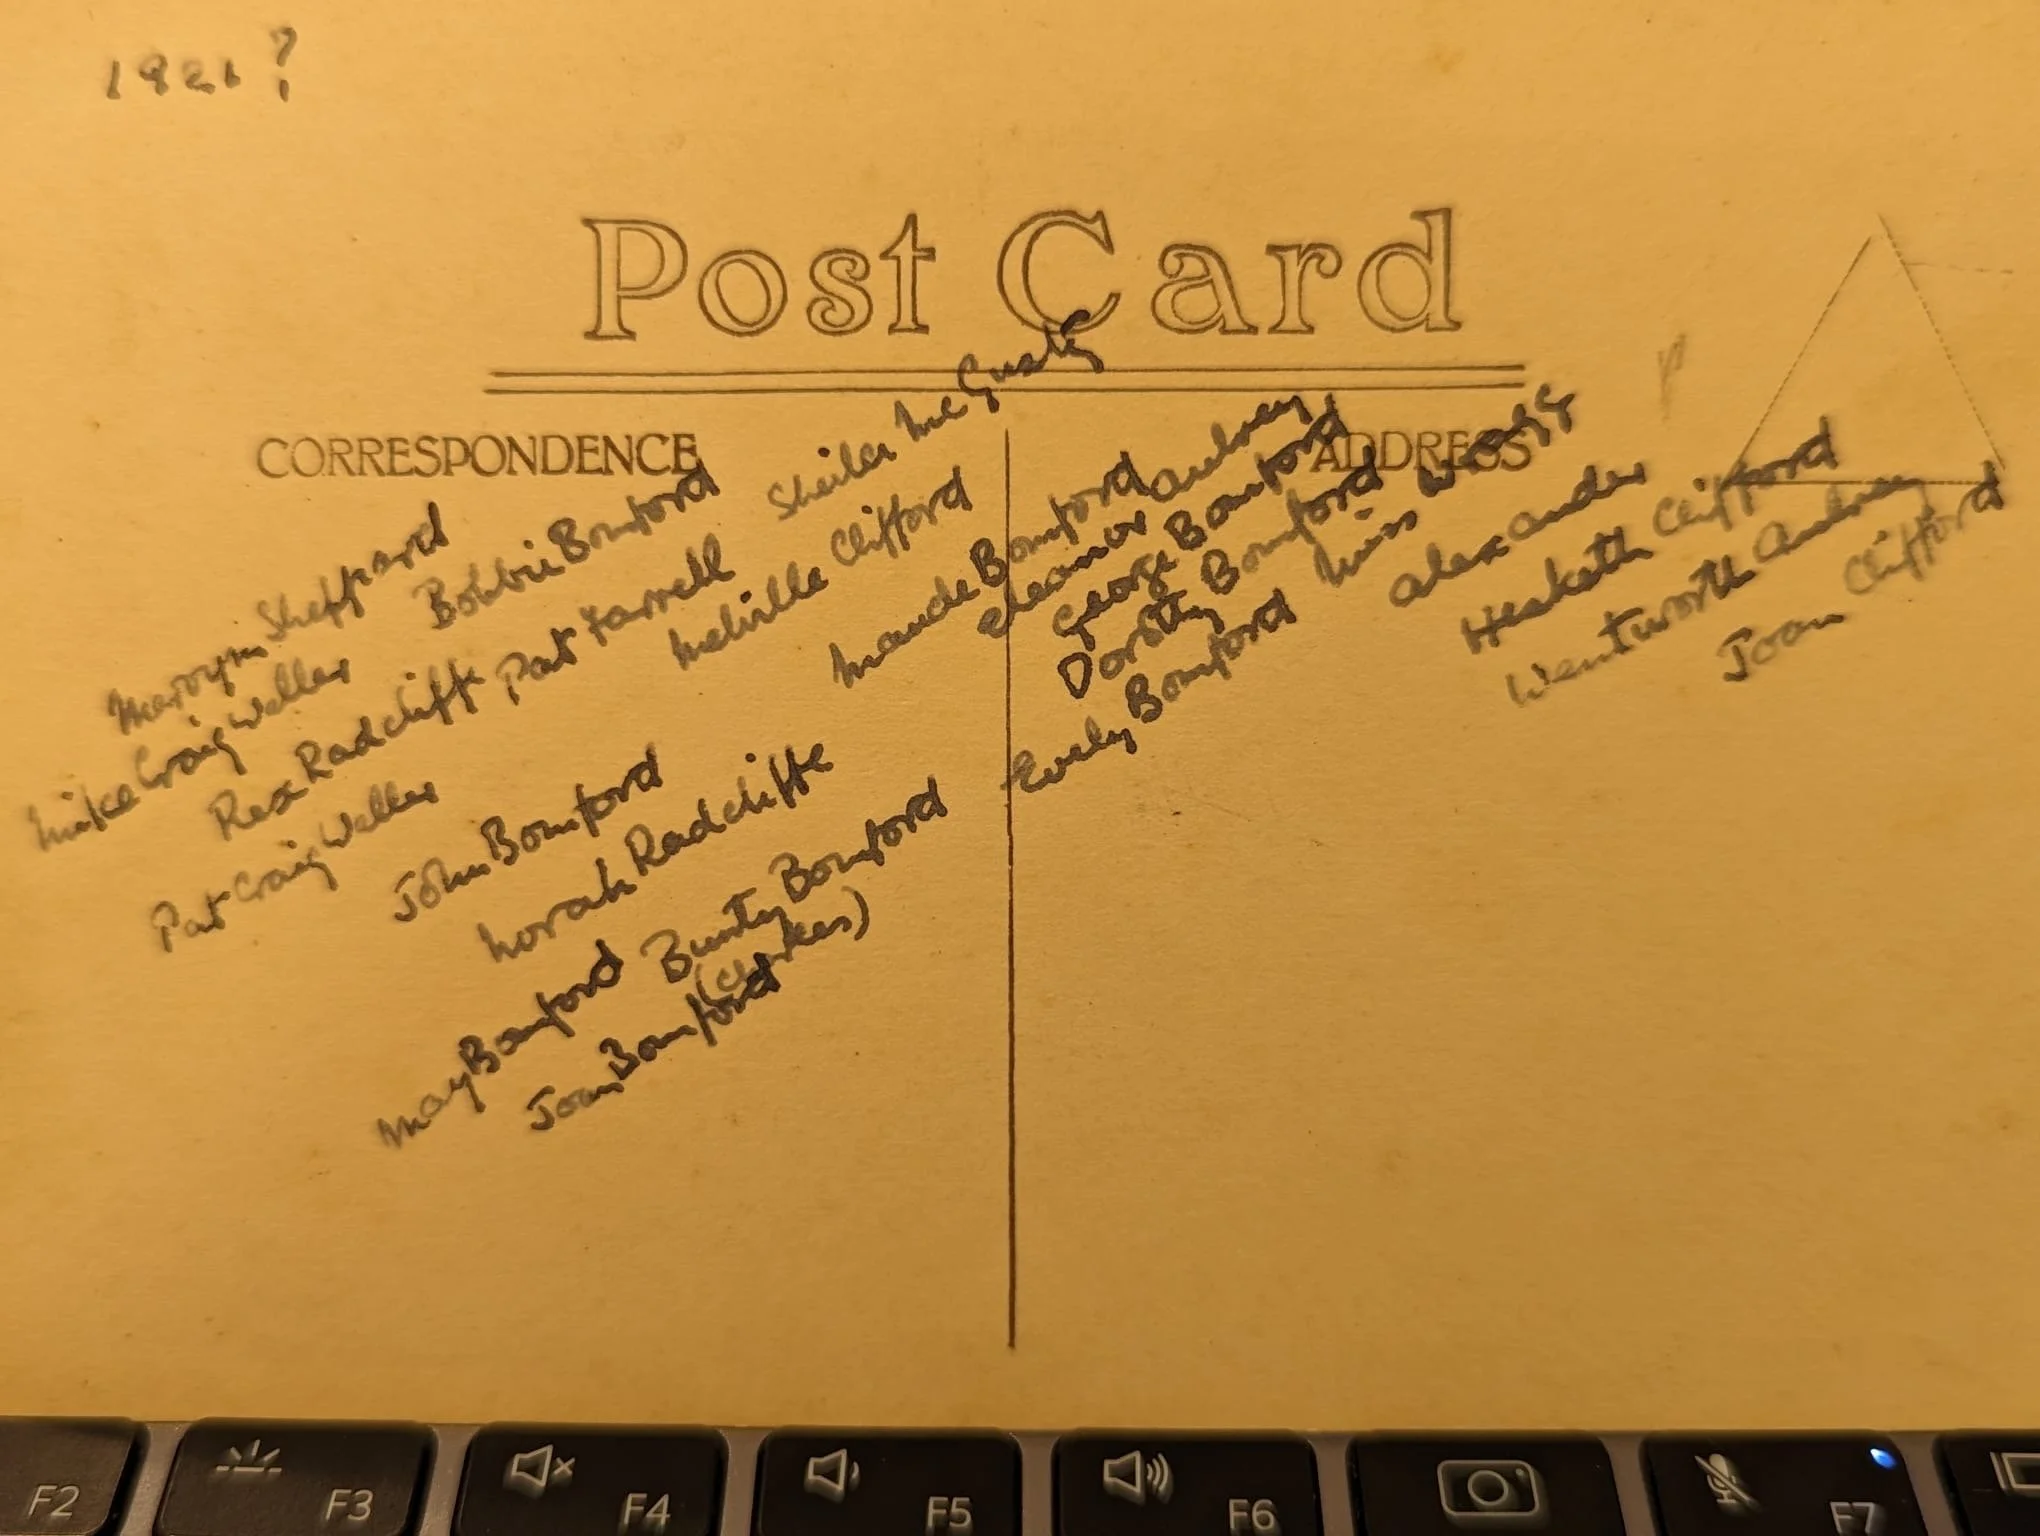 1921?
Post Card
CORRESPONDENCE
ADDRESS
Mervyn Sheppard
Bobbie Bomford
Sheila McGusty
Mike Craig Waller
Rex Radcliffe
Pat Farrell
Melville Clifford
Pat Craig Waller
John Bomford
Maude Bomford
Eleanor Aubrey
George Bomford
Norah Radcliffe
Dorothy Bomford
Miss
May Bomford
Bunty Bomford
Evelyn Bomford
Alexander
Joan Bomford
Hesketh Clifford
Wentworth Aubrey
Joan Clifford
F2
F3
F4
F5
F6
F7